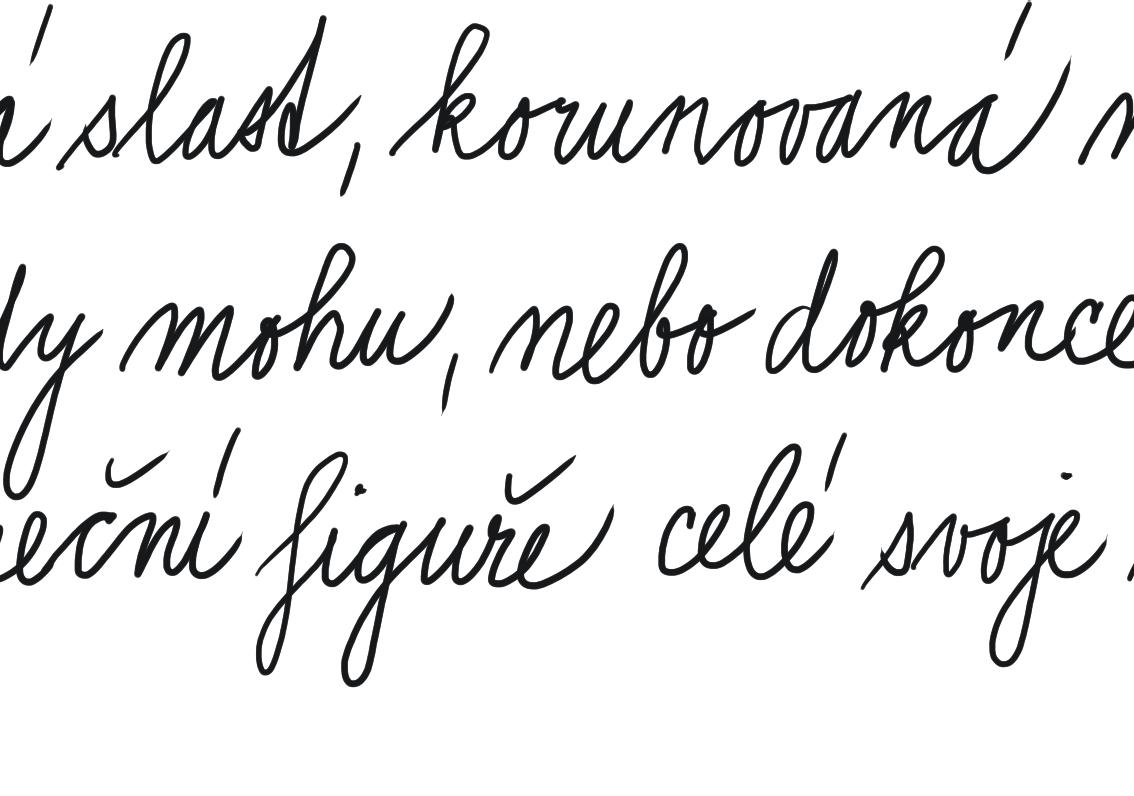 á slast, korunovaná n
dy mohu, nebo dokonce
eční figuře celé svoje